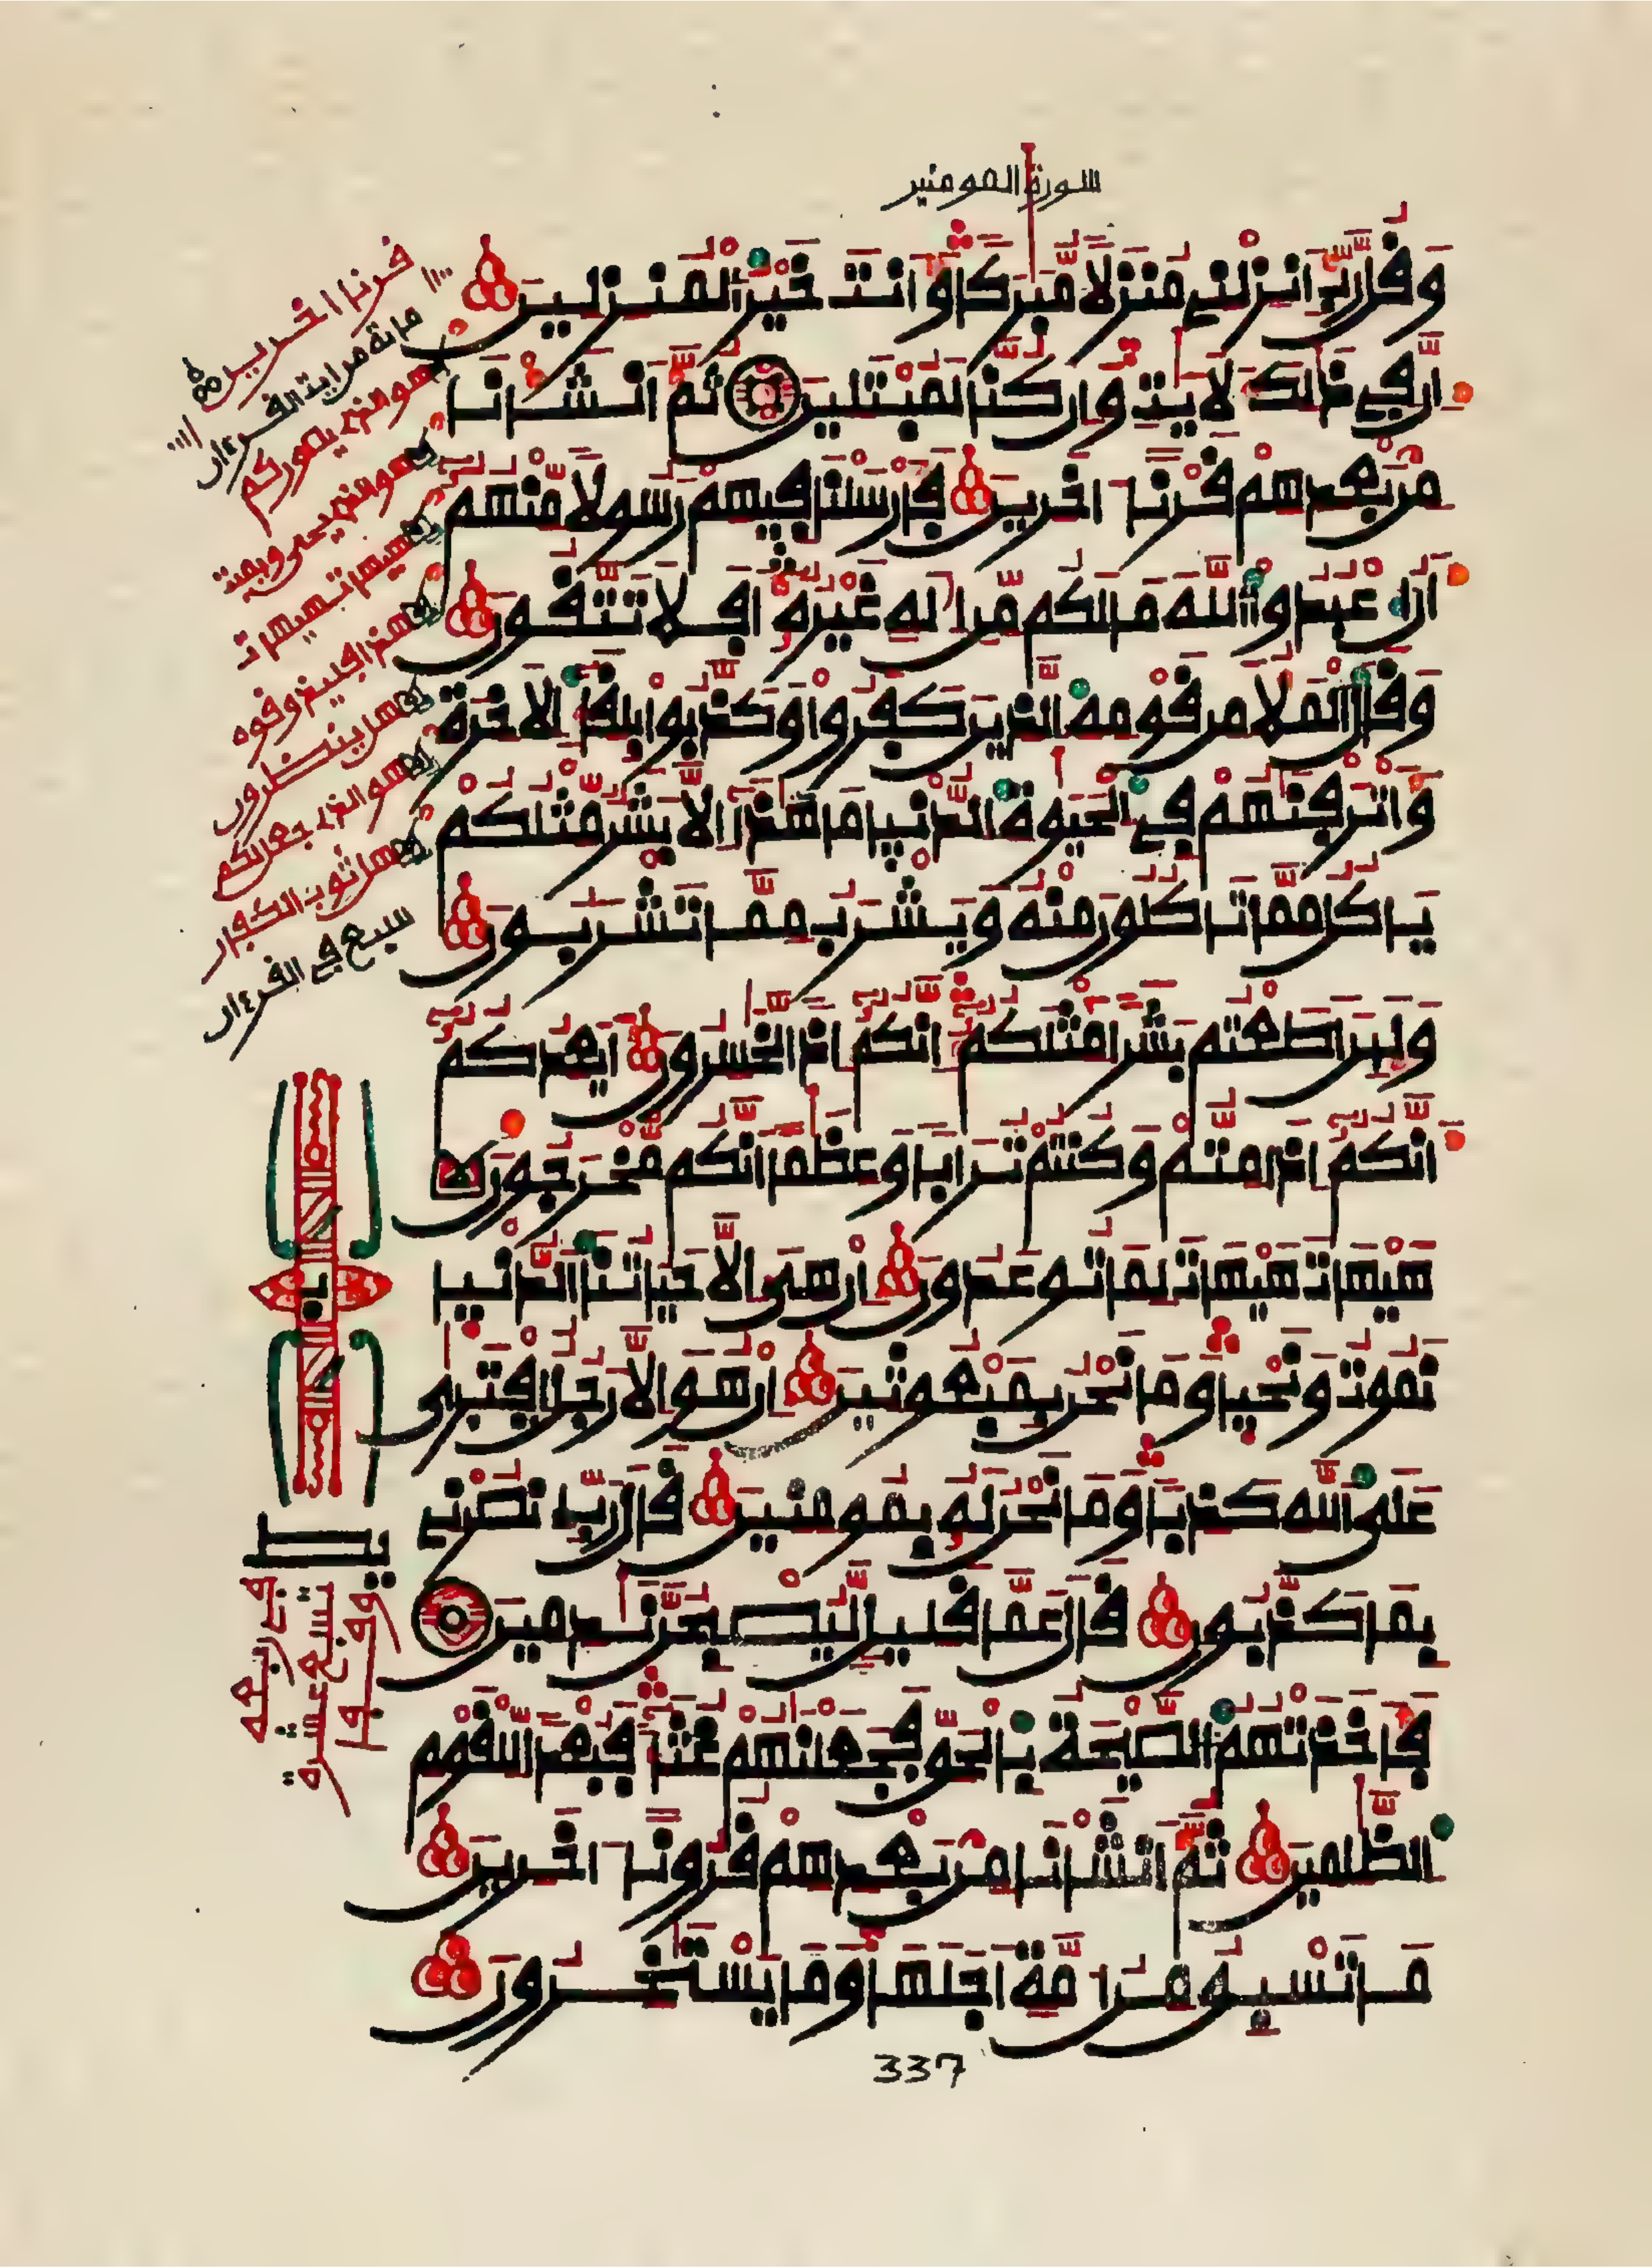 سورة المومنين
وَقُل رَّبِّ أَنزِلْنِے مُنزَلاً مُّبَٰرَكاً وَأَنتَ خَيْرُ اُلْمُنزِلِينَ
إِنَّ فِے ذَٰلِكَ لَأَيَٰتٍ وَإِن كُنَّا لَمُبْتَلِينَ ثُمَّ أَنشَأْنَا
مِنۢ بَعْدِهِمْ قَرْناً اٰخَرِينَ فَأَرْسَلْنَا فِيهِمْ رَسُولاً مِّنْهُمُ
أَنُ اُعْبُدُواْ اُللَّهَ مَا لَكُم مِّنِ اِلَٰهٍ غَيْرُهُ أَفَلَا تَتَّقُونَ
وَقَالَ اَلْمَلَأُ مِن قَوْمِهِ اِلذِينَ كَفَرُواْ وَكَذَّبُواْ بِلِقَآءِ اِلَاخِرَةِ
وَأَتْرَفْنَٰهُمْ فِے اِلْحَيَوٰةِ اِلدُّنْيَا مَا هَٰذَآ إِلَّا بَشَرٌ مِّثْلُكُمْ
يَاكُلُ مِمَّا تَاكُلُونَ مِنْهُ وَيَشْرَبُ مِمَّا تَشْرَبُونَ
وَلَئِنَ اَطَعْتُم بَشَراً مِّثْلَكُمُ إِنَّكُمُ إِذاً لَّخَٰسِرُونَ أَيَعِدُكُمُ
أَنَّكُمُ إِذَا مِتُّمْ وَكُنتُمْ تُرَاباً وَعِظَٰماً اَنَّكُم مُّخْرَجُونَ
هَيْهَاتَ هَيْهَاتَ لِمَا تُوعَدُونَ إِنْ هِىَ إِلَّا حَيَاتُنَا اَلدُّنْيَا
نَمُوتُ وَنَحْيَا وَمَا نَحْنُ بِمَبْعُوثِينَ إِنْ هُوَ إِلَّا رَجُلٌ اِفْتَرَىٰ
عَلَى اَللَّهِ كَذِباً وَمَا نَحْنُ لَهُ بِمُومِنِينَ قَالَ رَبِّ اِنصُرْنِے
بِمَا كَذَّبُونِ قَالَ عَمَّا قَلِيلٍ لَّيُصْبِحُنَّ نَٰدِمِينَ
فَأَخَذَتْهُمُ اُلصَّيْحَةُ بِالْحَقِّ فَجَعَلْنَٰهُمْ غُثَآءً فَبُعْداً لِّلْقَوْمِ
اِلظَّٰلِمِينَ ثُمَّ أَنشَأْنَا مِنۢ بَعْدِهِمْ قُرُوناً اٰخَرِينَ
مَا تَسْبِقُ مِنُ اُمَّةٍ اَجَلَهَا وَمَا يَسْتَٰخِرُونَ
قرنا اخرين
ماية من اية القرءان
هو الذى يصوركم
هو الذى يحى ويميت
هيهات هيهات
هل ينظرون
هو الذى جعل لكم
هل ثوب الكفار
سبع فى القرءان
337